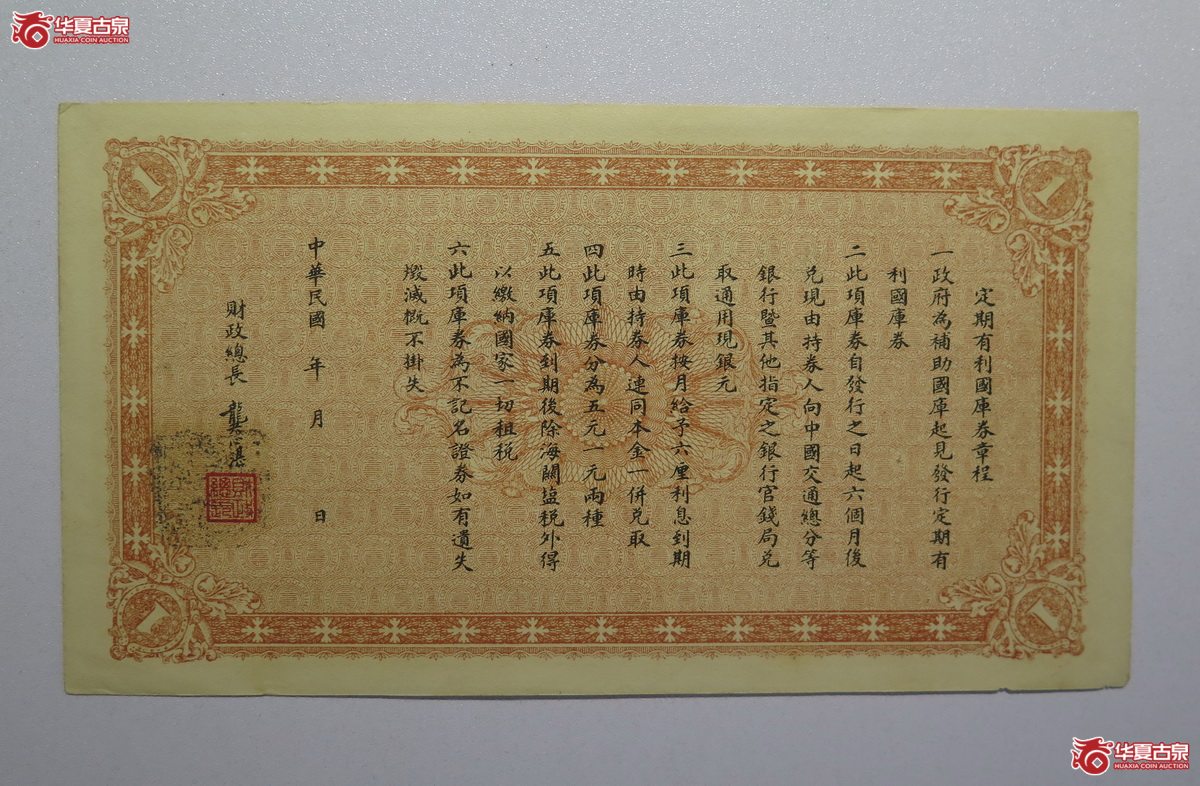 华夏古泉
HUAXIA COIN AUCTION
1
1
定期有利國庫券章程
一政府為補助國庫起見發行定期有
利國庫券
二此項庫券自發行之日起六個月後
兌現由持券人向中國交通總分等
銀行暨其他指定之銀行官錢局兌
取通用現銀元
三此項庫券按月給予六厘利息到期
時由持券人連同本金一併兌取
四此項庫券分為五元一元兩種
五此項庫券到期後除海關塩税外得
以繳納國家一切租税
六此項庫券為不記名證券如有遺失
燬滅概不掛失
中華民國 年 月 日
財政總長 龔心湛
1
1
华夏古泉
HUAXIA COIN AUCTION